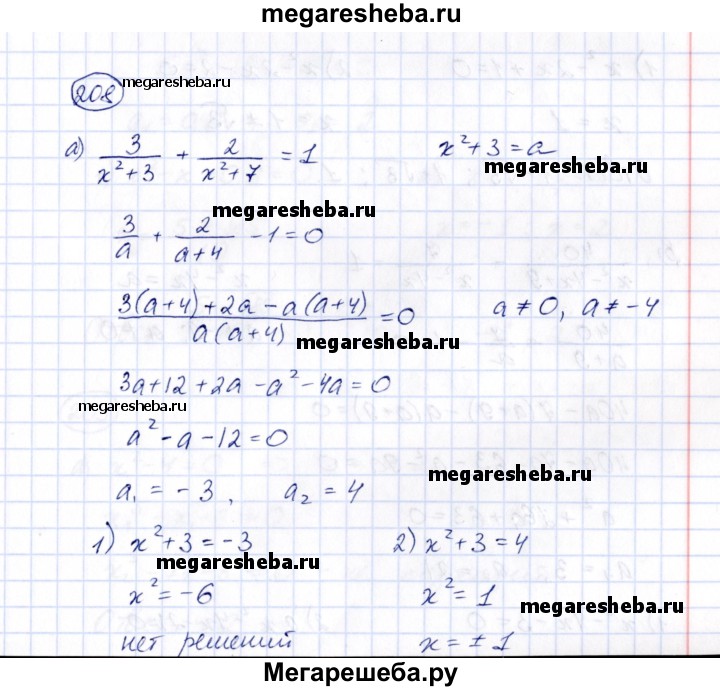 megaresheba.ru
208 megaresheba.ru
а) 3/(x²+3) + 2/(x²+7) = 1 x²+3 = a
megaresheba.ru
megaresheba.ru
3/a + 2/(a+4) - 1 = 0
(3(a+4)+2a-a(a+4))/(a(a+4)) = 0 a ≠ 0, a ≠ -4
megaresheba.ru
3a+12+2a-a²-4a=0
megaresheba.ru
a²-a-12=0
megaresheba.ru
a₁ = -3, a₂ = 4
1) x²+3=-3 2) x²+3=4
megaresheba.ru
x²=-6 x²=1
megaresheba.ru
нет решений x=±1
Мегарешеба.ру